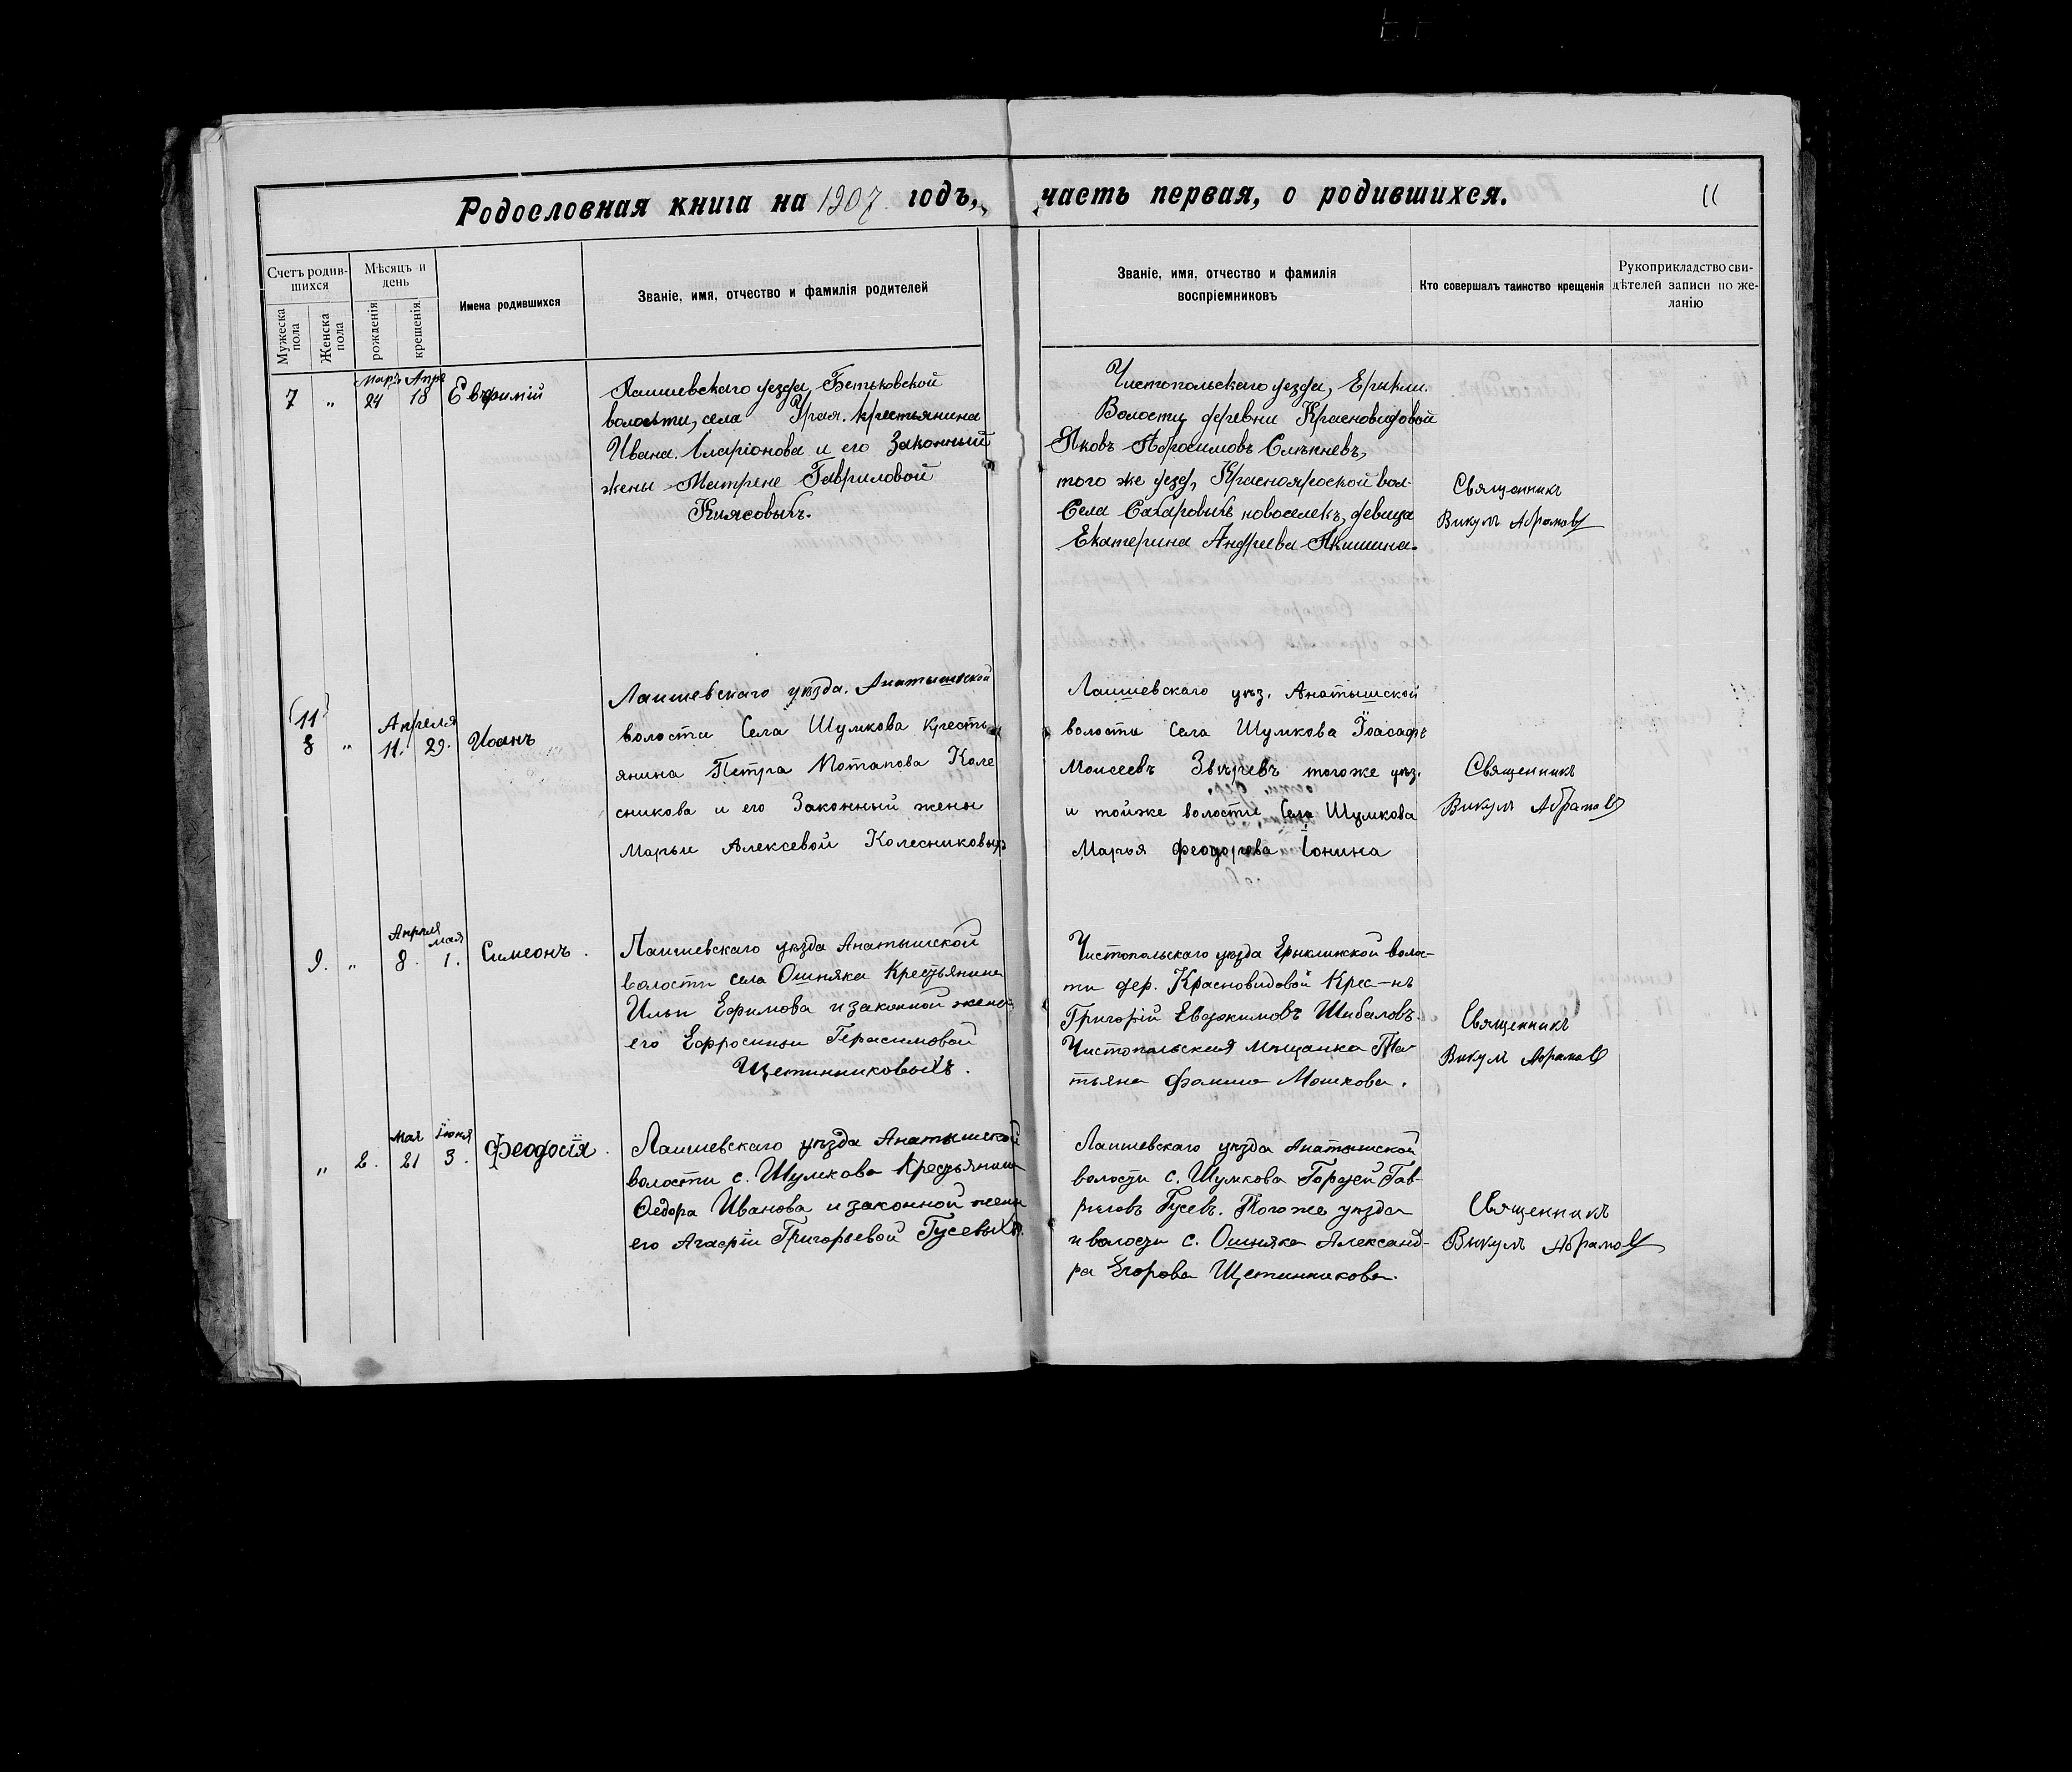 Родословная книга на 1907. годъ,
часть первая, о родившихся.
11
Счетъ родив-
шихся
Мужеска
пола
Женска
пола
Мѣсяцъ и
день
рожденія
крещенія
Имена родившихся
Званіе, имя, отчество и фамилія родителей
Званіе, имя, отчество и фамилія
воспріемниковъ
Кто совершалъ таинство крещенія
Рукоприкладство сви-
дѣтелей записи по же-
ланію
7 „
Мар. Апр.
24 18
Евфимій
Лаишевскаго уезда, Бетьковской
волости, села Урая. крестьянина
Ивана. Иларіонова и его Законный
жены Матрене Гавриловой
Киясовыхъ.
Чистопольскаго уезда, Ерикли.
Волости, деревни Красновидовой
Яковъ Абросимовъ
того же уезд, Красноярской вол-
Села Сахаровыхъ новоселекъ, девица
Екатерина Андреева Якишина.
Священникъ
Викулъ Абрамовъ
(11)
8 „
Апреля
11. 29.
Иоанъ
Лаишевскаго уѣзда. Анатышской
волости Села Шумкова Кресть
янина Петра Потапова Коле
сникова и его Законный жены
Марьи Алексевой Колесниковыхъ
Лаишевскаго уѣз. Анатышской
волости Села Шумкова Іоасафъ
Моисеевъ Звѣревъ тогоже уѣз.
и тойже волости Села Шумкова
Марья Феодорева Іонина
Священникъ
Викулъ Абрамовъ
9. „
Апреля мая
8. 1.
Симеонъ.
Лаишевскаго уѣзда Анатышской
волости села Ошняка Крестьянина
Ильи Ефимова и законной жены
его Ефросиньи Герасимовой
Щетинниковыхъ.
Чистопольскаго уѣзда Ерыклинской волос-
ти дер. Красновидовой Крес-нъ
Григорій Евдокимовъ Шибаловъ.
Чистопольская мѣщанка Та-
тьяна Фомина Мошкова.
Священникъ
Викулъ Абрамовъ
„ 2.
мая Іюня
21 3.
Феодосія.
Лаишевскаго уѣзда Анатышской
волости с. Шумкова Крестьянина
Федора Иванова и законной жены
его Агафіи Григорьевой Гусевыхъ.
Лаишевскаго уѣзда Анатышской
волости с. Шумкова Гордей Гав-
риловъ Гусевъ. Того же уѣзда
и волости с. Ошняка Александ-
ра Егорова Щетинникова.
Священникъ
Викулъ Абрамовъ